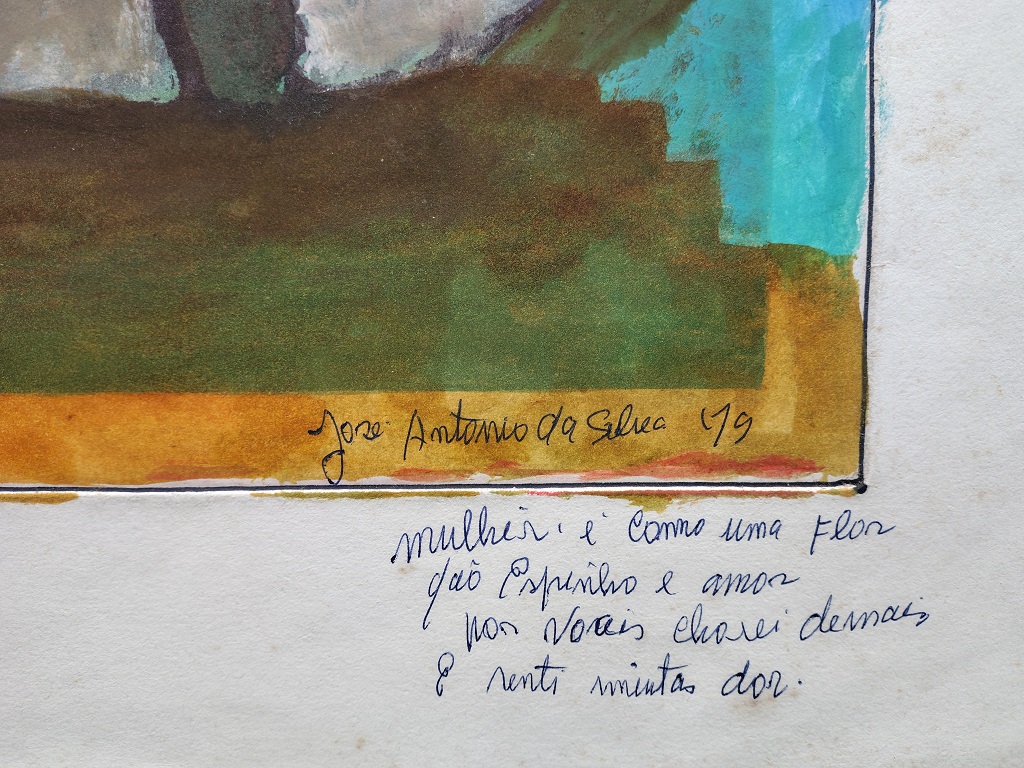 Jose Antonio da Silva 79
mulher. é Como uma Flor
dão Espinho e amor
por Voceis chorei demais,
E senti muntas dor.